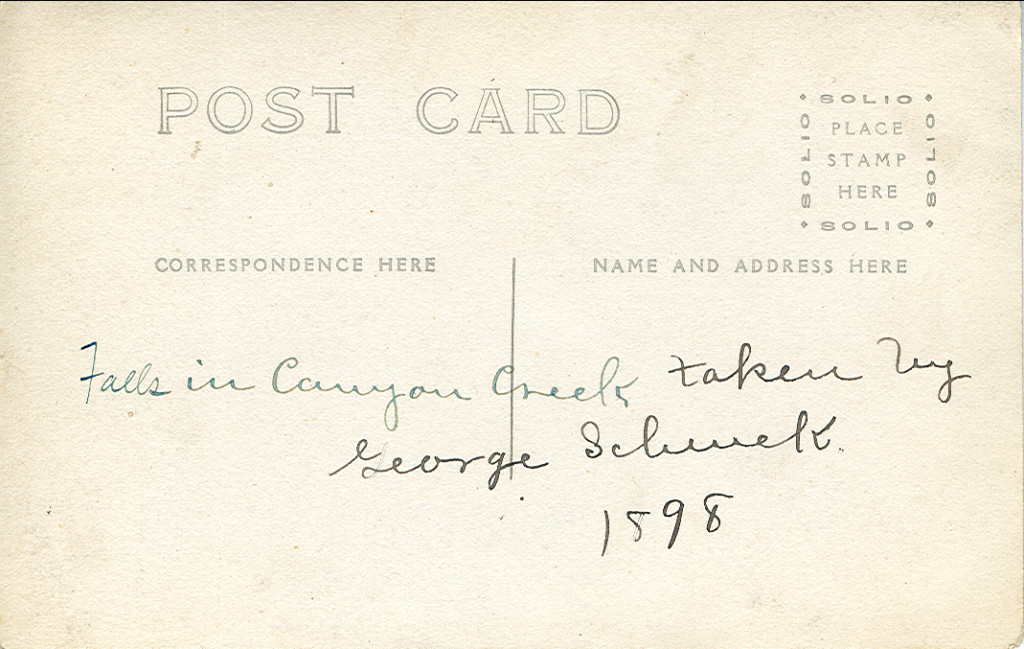 POST CARD
SOLIO
SOLIO PLACE SOLIO
STAMP
HERE
SOLIO
CORRESPONDENCE HERE
NAME AND ADDRESS HERE
Falls in Canyon Creek taken by
George
1898